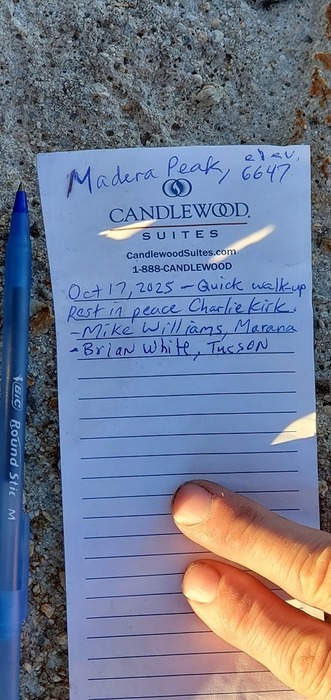 Madera Peak, elev. 6647
CANDLEWOOD
SUITES
CandlewoodSuites.com
1-888-CANDLEWOOD
Oct 17, 2025 - Quick walkup
Rest in peace Charlie Kirk.
- Mike Williams, Marana
- Brian White, Tucson
BIC Round Stic M